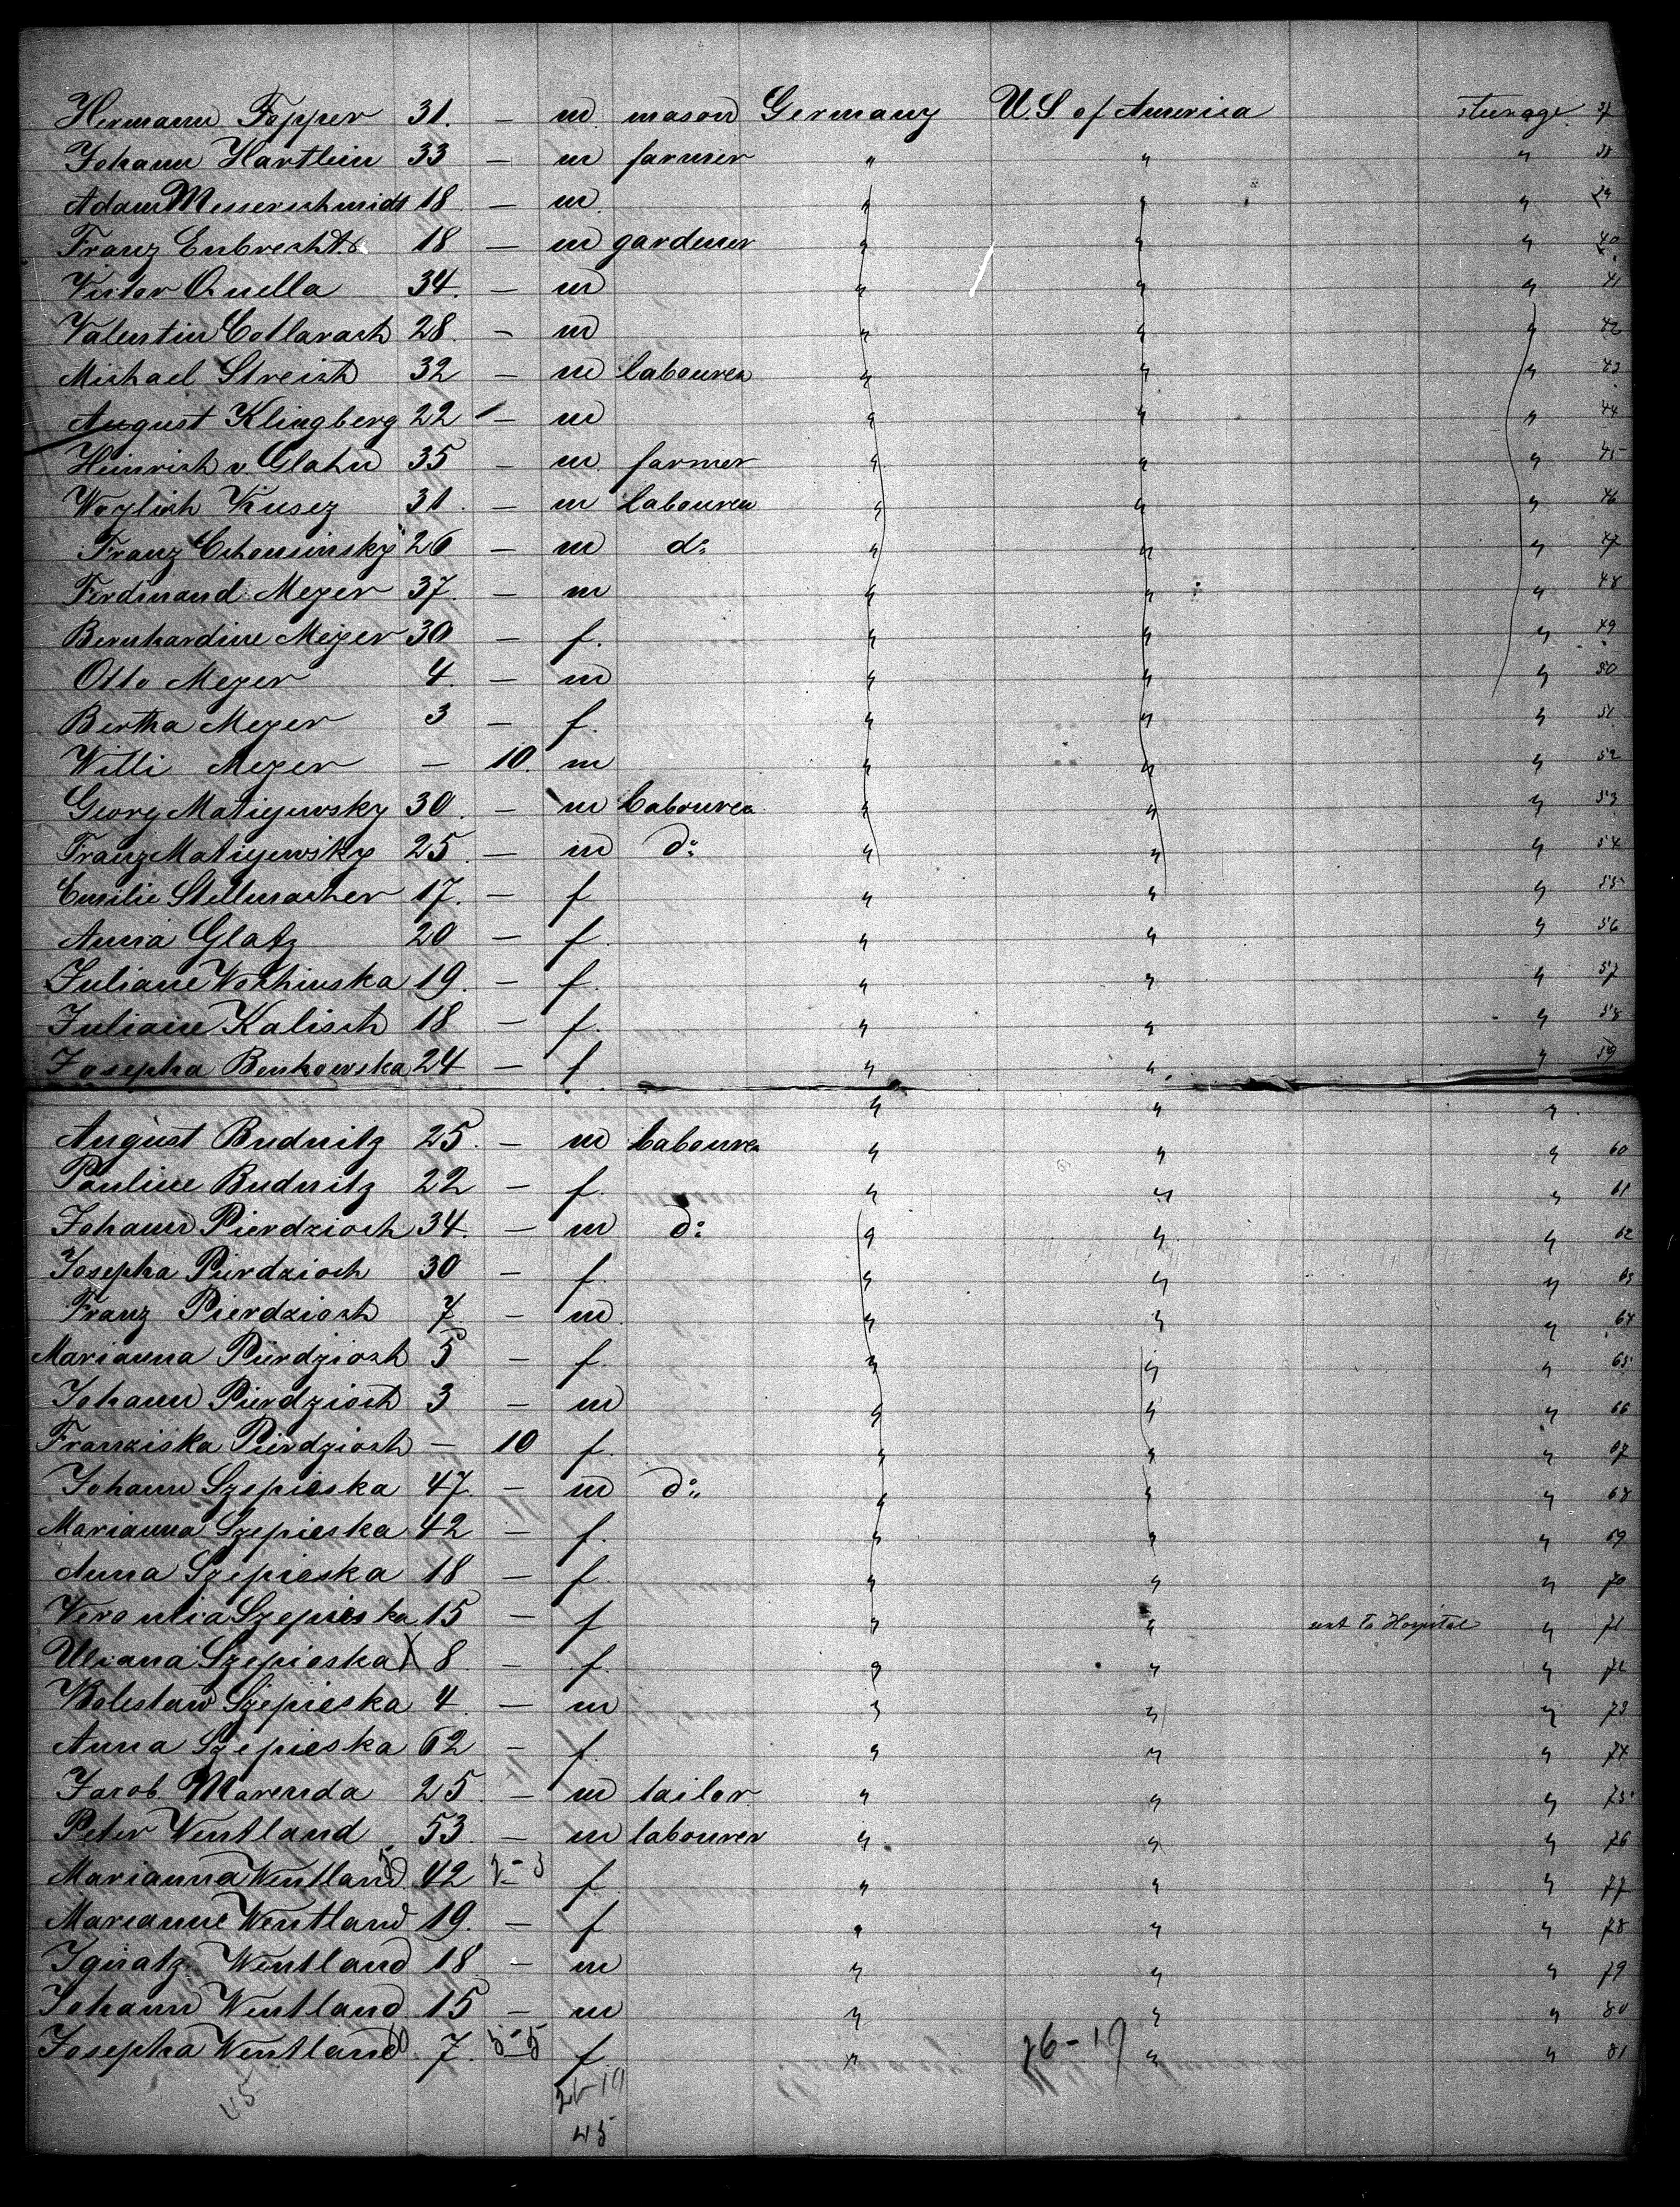 Hermann Fopper 31. — m mason Germany U.S of America steerage 37
Johann Hartlein 33 — m farmer " " " 38
Adam Messerschmidt 18 — m " " " 39
Franz Enbrecht 18 — m gardener " " " 40
Victor Quella 34. — m " " " 41
Valentin Collarach 28. — m " " " 42
Michael Streich 32 — m labourer " " " 43
August Klingberg 22 — m " " " 44
Heinrich v Glahn 35 — m farmer " " " 45
Kusez 31. — m labourer " " " 46
Franz 26 — m do " " " 47
Ferdinand Meyer 37 — m " " " 48
Bernhardine Meyer 30 — f. " " " 49
Otto Meyer 4. — m " " " 50
Bertha Meyer 3 — f. " " " 51
Willi Meyer — 10. m " " " 52
Georg Matiejewsky 30. — m labourer " " " 53
Franz Matiejewsky 25. — m do " " " 54
Emilie Stellmacher 17. — f " " " 55
Anna Glatz 20 — f. " " " 56
Juliane Wochinska 19. — f. " " " 57
Juliane Kalisch 18 — f. " " " 58
Josepha Benkowska 24 — f " " " 59
" " "
August Budnitz 25. — m labourer " " " 60
Pauline Budnitz 22 — f. " " " 61
Johann Pierdzioch 34. — m do " " " 62
Josepha Pierdzioch 30 — f. " " " 63
Franz Pierdzioch 7 — m " " " 64
Marianna Pierdzioch 5 — f. " " " 65
Johann Pierdzioch 3 — m " " " 66
Franziska Pierdzioch — 10 f. " " " 67
Johann Szepieska 47. — m do " " " 68
Marianna Szepieska 42 — f. " " " 69
Anna Szepieska 18 — f. " " " 70
Veronica Szepieska 15 — f " " sent to Hospital " 71
Uliana Szepieska X 8 — f. " " " 72
Boleslaw Szepieska 4 — m " " " 73
Anna Szepieska 62 — f. " " " 74
Jacob Marenda 25. — m tailor " " " 75
Peter Wentland 53. — m labourer " " " 76
Marianna Wentland 42 2-3 f " " " 77
Marianne Wentland 19. — f " " " 78
Ignatz Wentland 18. — m " " " 79
Johann Wentland 15 — m " " " 80
Josepha Wentland 7. 5-5 f " 26-19 " " 81
45 26-19
45